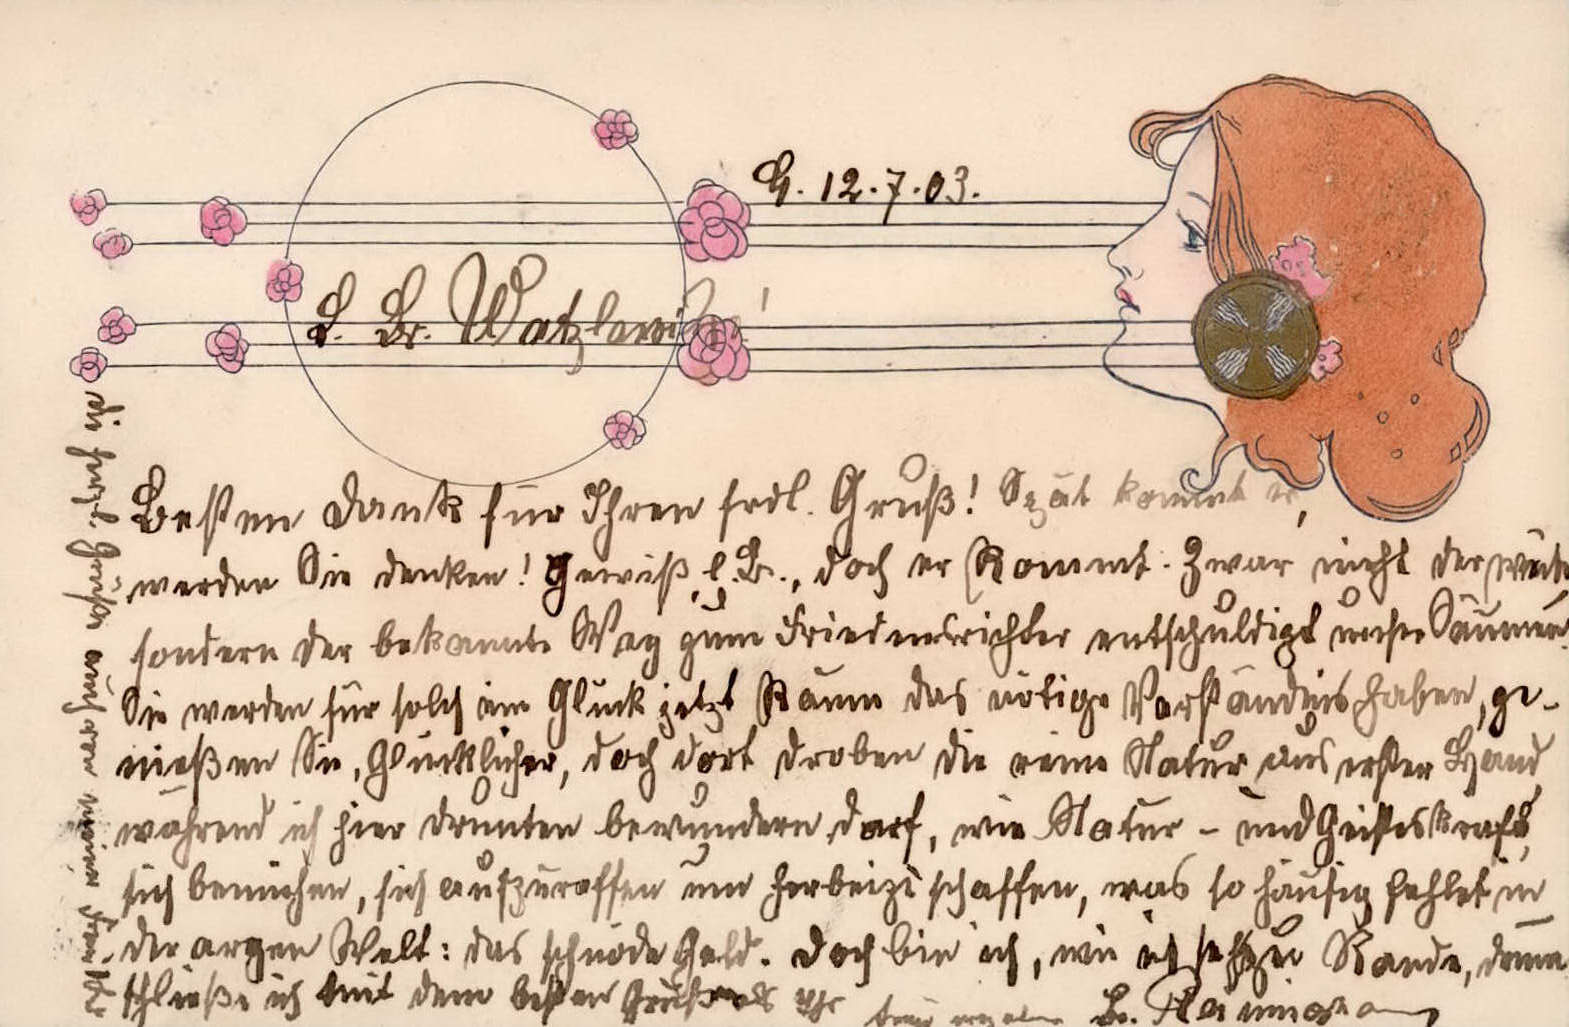 G. 12.7.03.
L. Br. Watzlawick!
Besten Dank für Ihren frdl. Gruß! Spät kommt er,
werden Sie denken! Gewiß, l. Br., doch er kommt. Zwar nicht der weite
sondern der bekannte Weg zum Friedensrichter entschuldigt mein Säumen.
Sie werden für solch ein Glück jetzt kaum das nötige Verständnis haben, ge-
nießen Sie, Glücklicher, doch dort droben die reine Natur aus erster Hand
während ich hier drunten bewundern darf, wie Natur- und Geisteskraft
sich bemühen, sich aufzuraffen um herbeizuschaffen, was so häufig fehlet in
der argen Welt: das schnöde Geld. Doch bin ich, wie ich seh zu Rande, drum
schließe ich mit dem besten Gruß als Ihr
Br.